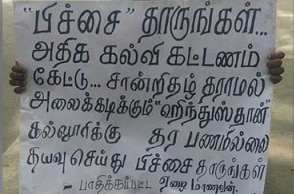 "பிச்சை" தாருங்கள்...
அதிக கல்வி கட்டணம்
கேட்டு... சான்றிதழ் தராமல்
அலைக்கடிக்கும் "ஹிந்துஸ்தான்"
கல்லூரிக்கு தர பணமில்லை
தயவு செய்து பிச்சை தாருங்கள்
- பாதிக்கப்பட்ட ஏழை மாணவன்.